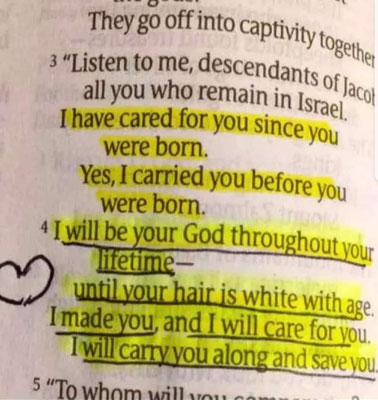 They go off into captivity together
3 "Listen to me, descendants of Jacob
all you who remain in Israel.
I have cared for you since you
were born.
Yes, I carried you before you
were born.
4 I will be your God throughout your
lifetime—
until your hair is white with age.
I made you, and I will care for you.
I will carry you along and save you.
5 "To whom will you